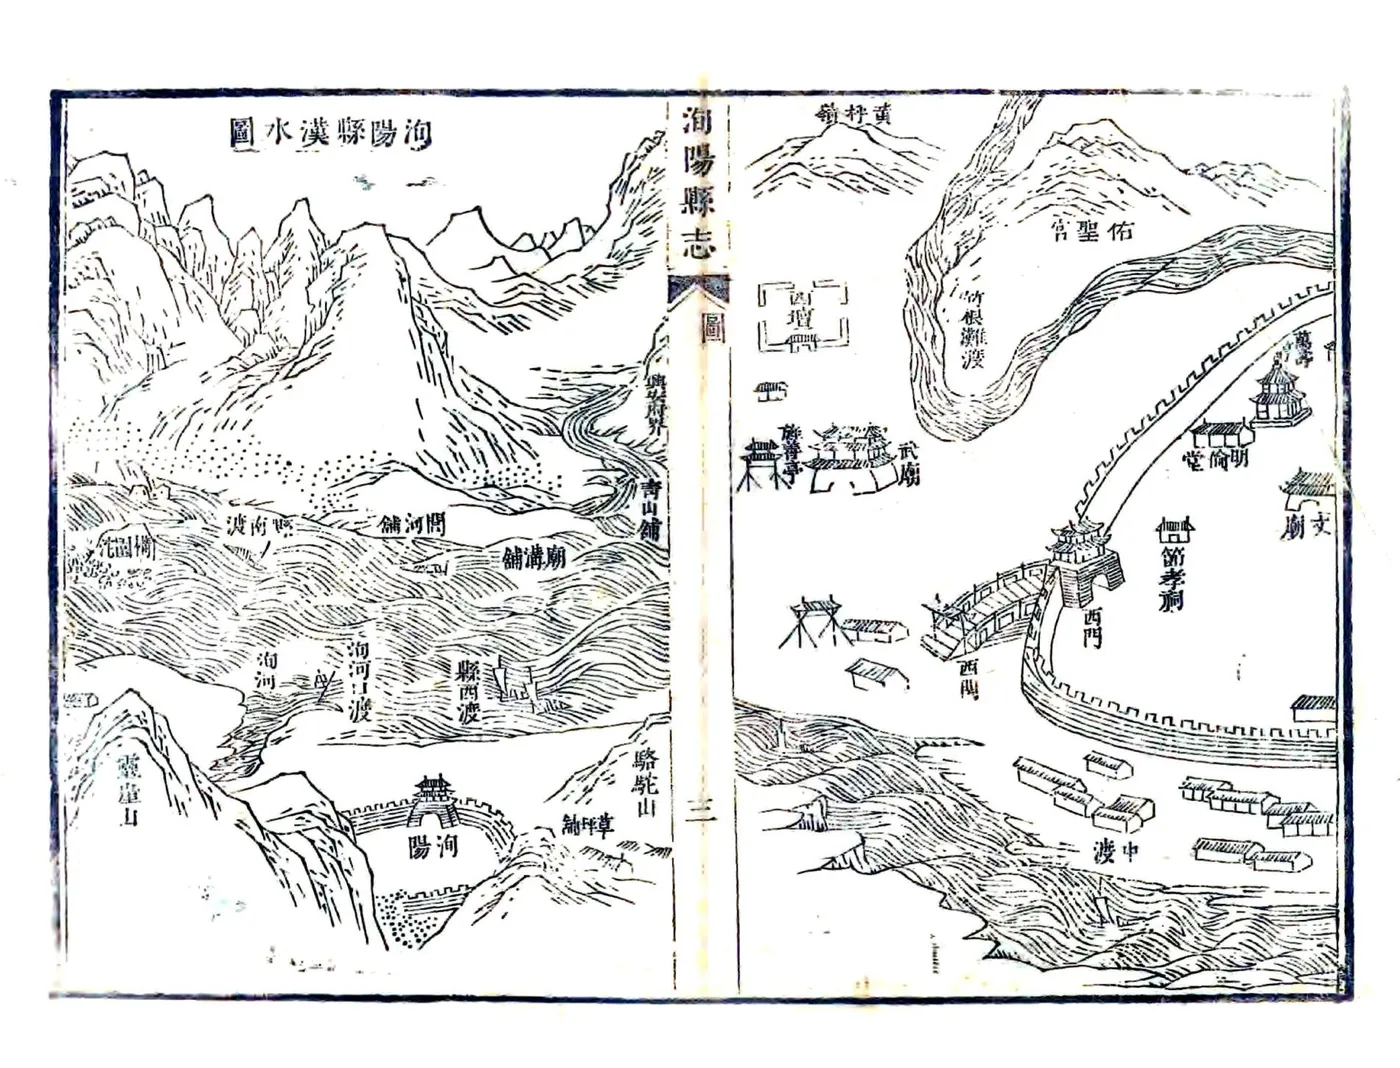 黃枰嶺
佑聖宮
竹根灘渡
西壇
武廟
旌善亭
萬壽宮
明倫堂
文廟
節孝祠
西門
西關
中渡
洵陽縣志
圖
三
洵陽縣漢水圖
興安府界
青山舖
縣南渡
閭河舖
廟溝舖
洵河
洵河口渡
縣西渡
靈崖山
駱駝山
草坪舖
洵陽